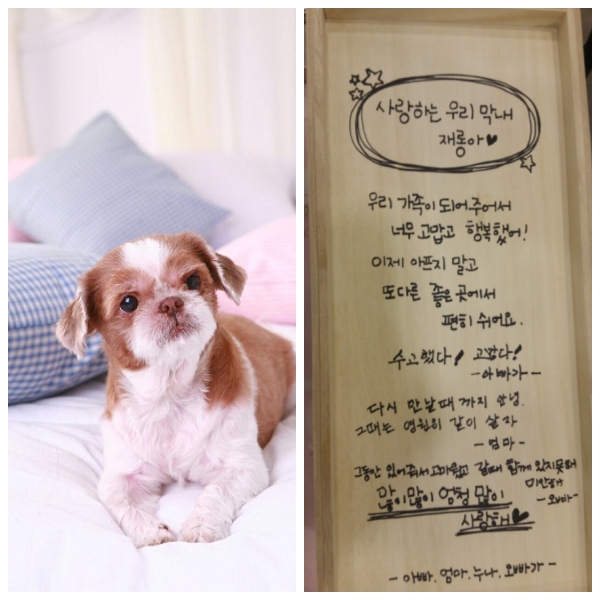 사랑하는 우리 막내
재롱아♥
우리 가족이 되어주어서
너무 고맙고 행복했어!
이제 아프지 말고
또다른 좋은 곳에서
편히 쉬어요.
수고했다! 고맙다!
-아빠가-
다시 만날 때 까지 안녕.
그때는 영원히 같이 살자
-엄마-
그동안 있어줘서 고마웠고 갈때 함께 있지못해
미안해
많이많이 엄청 많이
-오빠-
사랑해♥
-아빠.엄마.누나.오빠가-